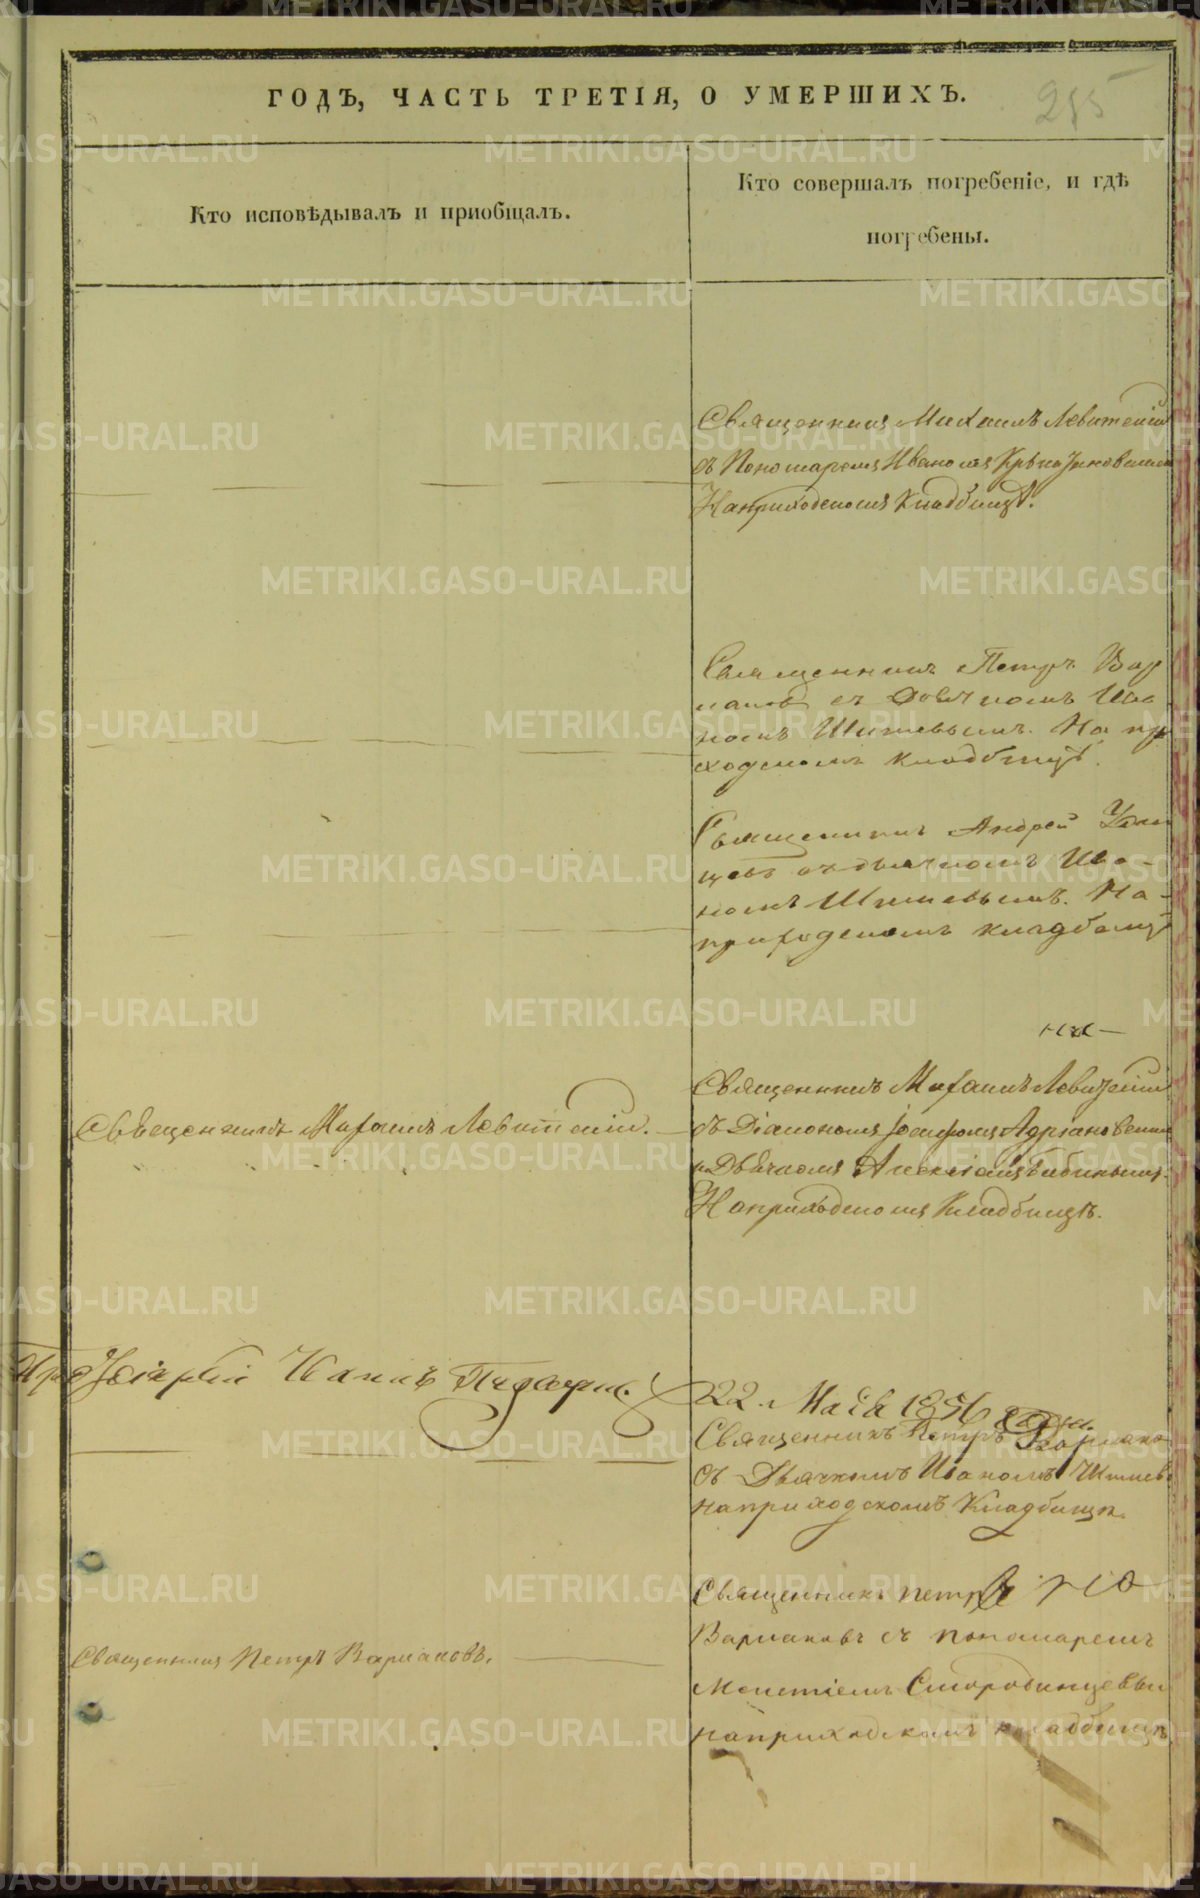 ГОДЪ, ЧАСТЬ ТРЕТІЯ, О УМЕРШИХЪ.
Кто исповѣдывалъ и приобщалъ.
Кто совершалъ погребеніе, и гдѣ
погребены.
Священникъ Михаилъ Левитскій
съ Пономаремъ Иваномъ
На приходскомъ кладбищѣ.
Священникъ Петръ Вар
лаковъ съ Дьячкомъ Ива
номъ Шишевымъ. На при
ходскомъ кладбищѣ.
Священникъ Андрей
съ дьячкомъ Ива-
номъ Шишевымъ. На-
приходскомъ кладбищѣ
Священникъ Михаилъ Левитскій.
Священникъ Михаилъ Левитскій
съ Діакономъ Іосифомъ Адріановскимъ
и Дьячкомъ Алексіемъ
На приходскомъ Кладбищѣ.
22. Маія 1856
Священникъ Петръ Варлаковъ
съ Дьячкомъ Иваномъ Шишев
на приходскомъ Кладбищѣ.
Священникъ Петръ Варлаковъ.
Священникъ Петръ
Варлаковъ съ пономаремъ
Смородинцевым
на приходскомъ кладбищѣ
METRIKI.GASO-URAL.RU